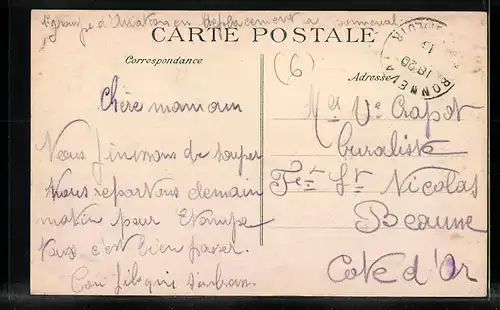 groupe d'Aviation en deplacement a
CARTE POSTALE
Correspondance
Adresse
(6)
BONNEVAL
18 20
Chère maman
Nous finissons de souper
Nous repartons demain
matin pour Etampe
tous c'est bien passer.
Ton fils qui
Vve Crapot
buraliste
Fg St Nicolas
Beaune
Cote d'Or